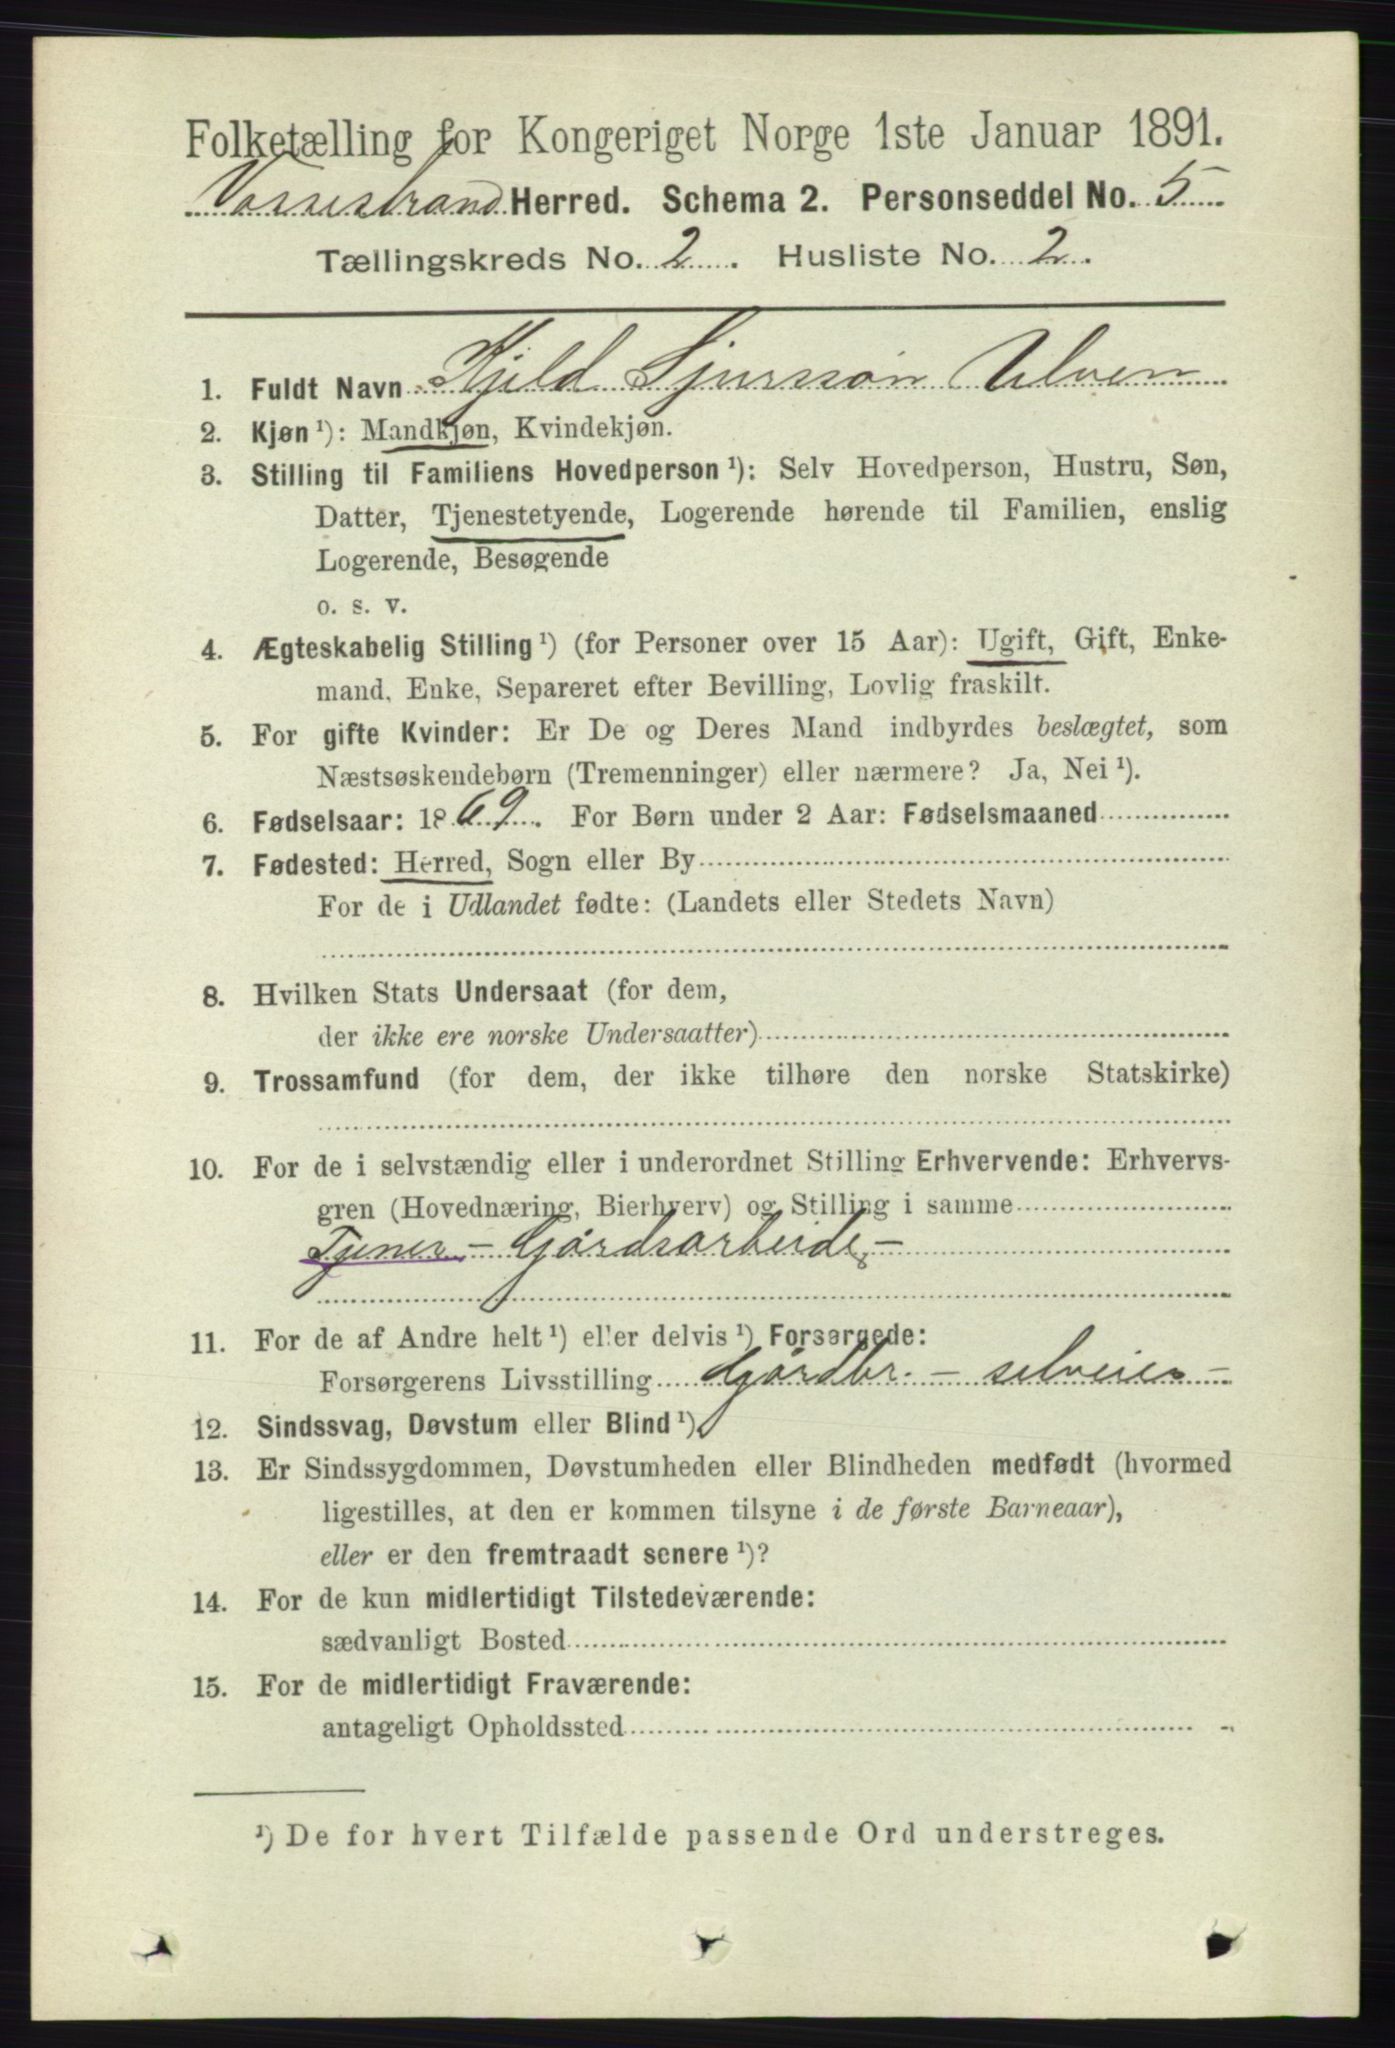 Folketælling for Kongeriget Norge 1ste Januar 1891.
Vossestrand Herred. Schema 2. Personseddel No. 5
Tællingskreds No. 2. Husliste No. 2.
1. Fuldt Navn Kjeld Sjurssøn Ulven
2. Kjøn ¹): Mandkjøn, Kvindekjøn.
3. Stilling til Familiens Hovedperson ¹): Selv Hovedperson, Hustru, Søn,
Datter, Tjenestetyende, Logerende hørende til Familien, enslig
Logerende, Besøgende
o. s. v.
4. Ægteskabelig Stilling ¹) (for Personer over 15 Aar): Ugift, Gift, Enke-
mand, Enke, Separeret efter Bevilling, Lovlig fraskilt.
5. For gifte Kvinder: Er De og Deres Mand indbyrdes beslægtet, som
Næstsøskendebørn (Tremenninger) eller nærmere? Ja, Nei ¹).
6. Fødselsaar: 1869. For Børn under 2 Aar: Fødselsmaaned
7. Fødested: Herred, Sogn eller By
For de i Udlandet fødte: (Landets eller Stedets Navn)
8. Hvilken Stats Undersaat (for dem,
der ikke ere norske Undersaatter)
9. Trossamfund (for dem, der ikke tilhøre den norske Statskirke)
10. For de i selvstændig eller i underordnet Stilling Erhvervende: Erhvervs-
gren (Hovednæring, Bierhverv) og Stilling i samme
Tjener - Gårdsarbeide -
11. For de af Andre helt ¹) eller delvis ¹) Forsørgede:
Forsørgerens Livsstilling Gårdbr. - selveier -
12. Sindssvag, Døvstum eller Blind ¹).
13. Er Sindssygdommen, Døvstumheden eller Blindheden medfødt (hvormed
ligestilles, at den er kommen tilsyne i de første Barneaar),
eller er den fremtraadt senere ¹)?
14. For de kun midlertidigt Tilstedeværende:
sædvanligt Bosted
15. For de midlertidigt Fraværende:
antageligt Opholdssted
¹) De for hvert Tilfælde passende Ord understreges.